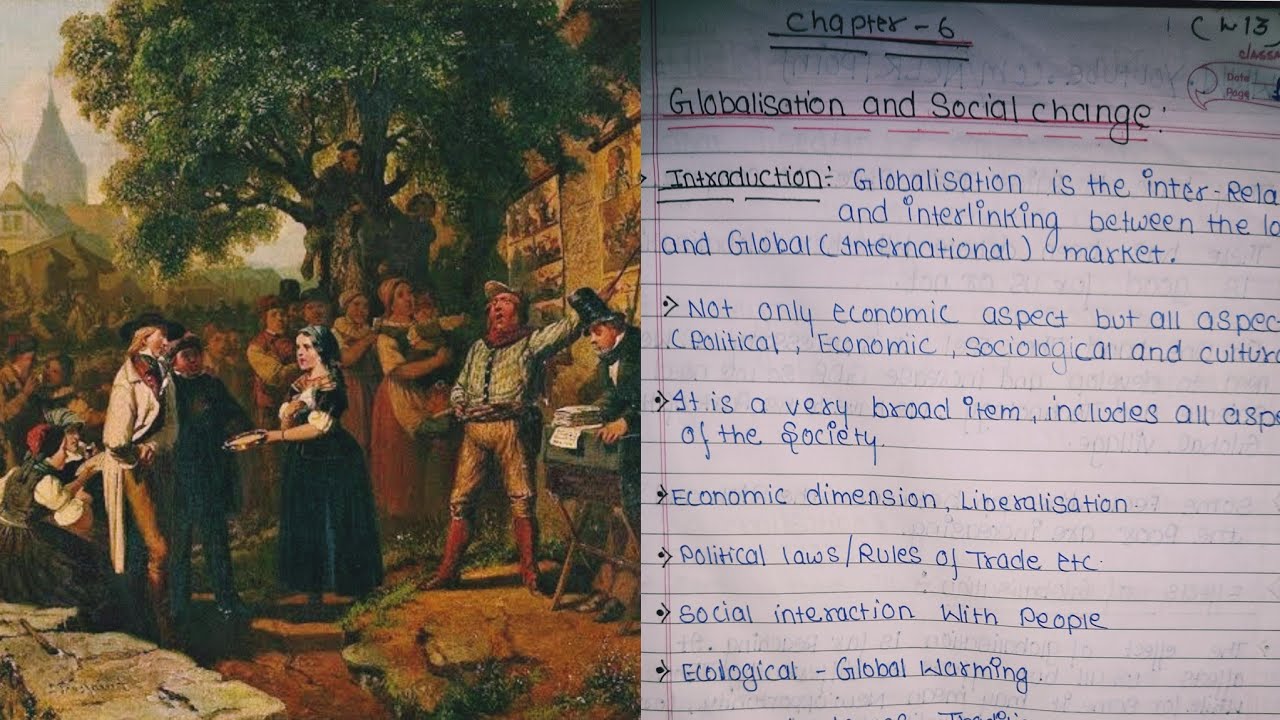 Chapter - 6
Globalisation and Social change:
Introduction: Globalisation is the inter-Rela
and interlinking between the lo
and Global (International) market.
Not only economic aspect but all aspec
(Political, Economic, Sociological and cultura
It is a very broad item, includes all aspe
of the Society.
Economic dimension, Liberalisation.
Political laws/Rules of Trade etc.
Social interaction With People
Ecological - Global Warming
Date
Page